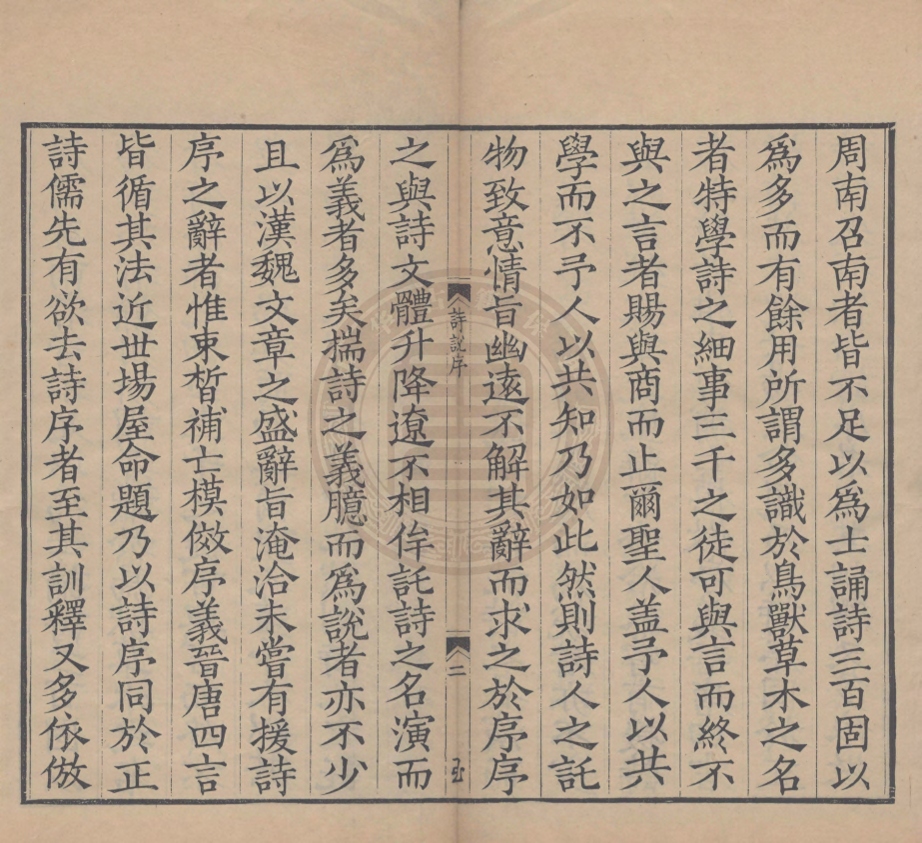 周南召南者皆不足以爲士誦詩三百固以
爲多而有餘用所謂多識於鳥獸草木之名
者特學詩之細事三千之徒可與言而終不
與之言者賜與商而止爾聖人盖予人以共
學而不予人以共知乃如此然則詩人之託
物致意情旨幽遠不解其辭而求之於序序
詩說序
二
之與詩文體升降遼不相侔託詩之名演而
爲義者多矣揣詩之義臆而爲說者亦不少
且以漢魏文章之盛辭旨淹洽未嘗有援詩
序之辭者惟束晳補亡模倣序義晉唐四言
皆循其法近世場屋命題乃以詩序同於正
詩儒先有欲去詩序者至其訓釋又多依倣